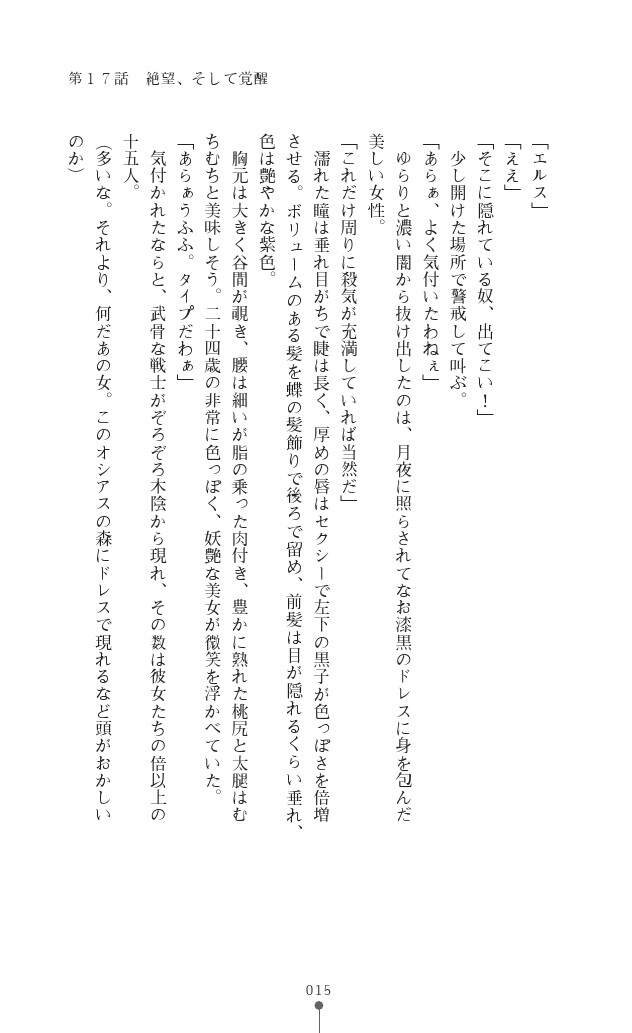 第１７話　絶望、そして覚醒
「エルス」
「ええ」
「そこに隠れている奴、出てこい！」
　少し開けた場所で警戒して叫ぶ。
「あらぁ、よく気付いたわねぇ」
　ゆらりと濃い闇から抜け出したのは、月夜に照らされてなお漆黒のドレスに身を包んだ
美しい女性。
「これだけ周りに殺気が充満していれば当然だ」
　濡れた瞳は垂れ目がちで睫は長く、厚めの唇はセクシーで左下の黒子が色っぽさを倍増
させる。ボリュームのある髪を蝶の髪飾りで後ろで留め、前髪は目が隠れるくらい垂れ、
色は艶やかな紫色。
　胸元は大きく谷間が覗き、腰は細いが脂の乗った肉付き、豊かに熟れた桃尻と太腿はむ
ちむちと美味しそう。二十四歳の非常に色っぽく、妖艶な美女が微笑を浮かべていた。
「あらぁうふふ。タイプだわぁ」
　気付かれたならと、武骨な戦士がぞろぞろ木陰から現れ、その数は彼女たちの倍以上の
十五人。
（多いな。それより、何だあの女。このオシアスの森にドレスで現れるなど頭がおかしい
のか）
015